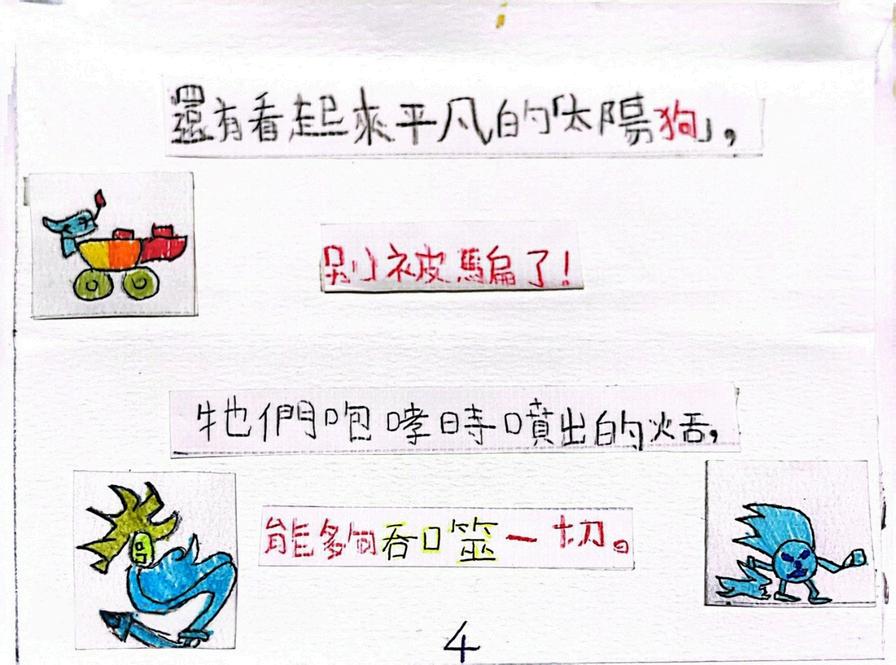 還有看起來平凡的「太陽狗」，
別被騙了！
牠們咆哮時噴出的火舌，
能夠吞噬一切。
4